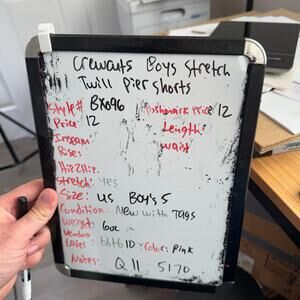 Crewcuts Boys Stretch
Twill Pier Shorts
Style# BX096 Poshmark Price 12
Price 12 Length:
Inseam: waist
Rise:
Hip2Hip:
Stretch: yes
Size: US Boy's 5
Condition: New with Tags
Weight: 6oz
Vendoo
Label: Color: Pink
Notes: Q11 5170